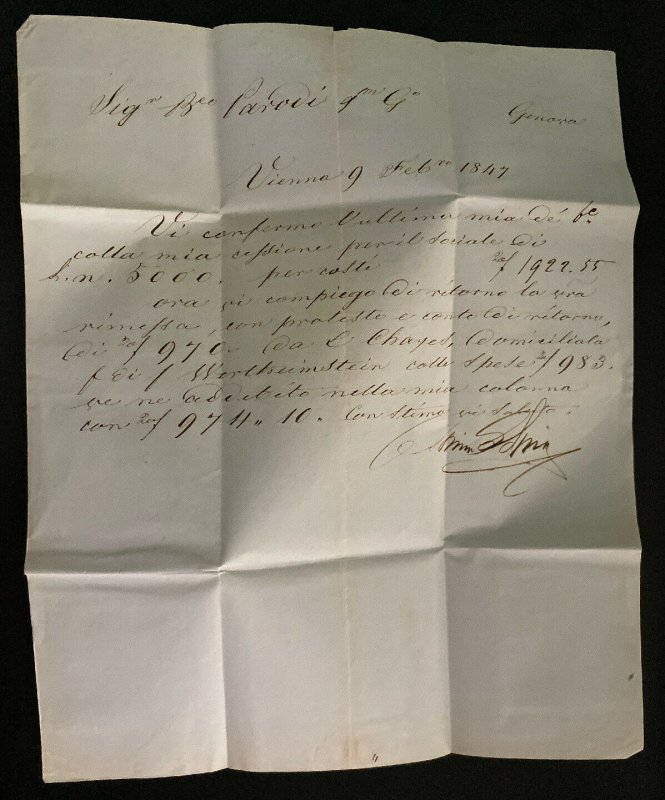 Sig.n B.eo Parodi q.m G.o
Genova
Vienna 9 Feb.ro 1847
Vi confermo l'ultima mia dé 6 c.
colla mia cessione per il sociale di
L.n. 5000. per costì f 1922.55
ora vi compiego di ritorno la vra
rimessa, con protesto e conto di ritorno,
di f 970. da L Chayes, domiciliata
f di / Wertheimstein colle spese f 983.
ve ne addebito nella mia colonna
con f 974.. 10.. Con stima vi saluto.